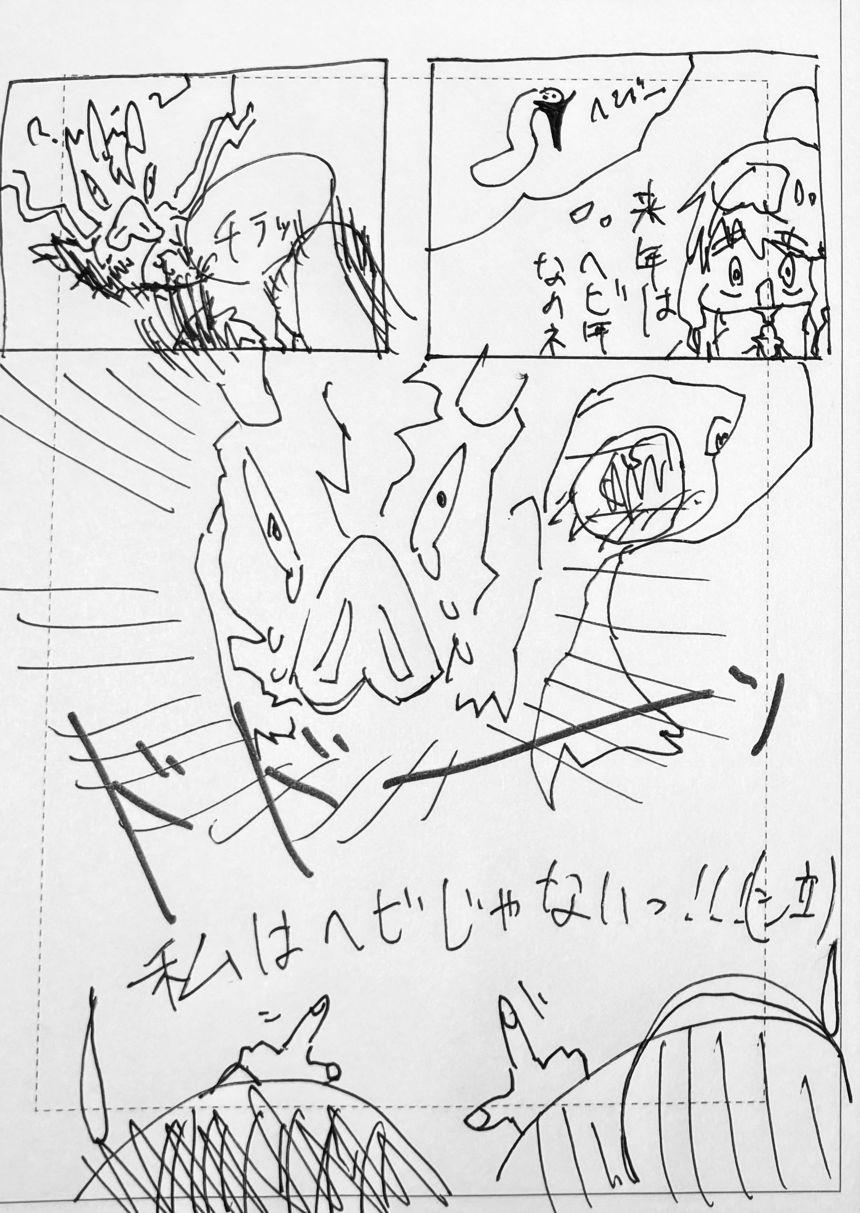 ヘビー
来年は
ヘビ年
なのネ
チラッ
ドドーン
私はヘビじゃないっ!!!(泣)